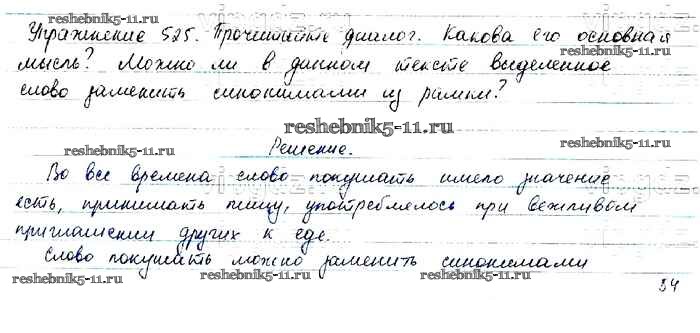 reshebnik5-11.ru
Упражнение 525. Прочитайте диалог. Какова его основная
мысль? Можно ли в данном тексте выделенное
слово заменить синонимами из рамки?
reshebnik5-11.ru
Решение.
Во все времена слово покушать имело значение
есть, принимать пищу, употреблялось при вежливом
приглашении других к еде.
Слово покушать можно заменить синонимами
reshebnik5-11.ru reshebnik5-11.ru reshebnik5-11.ru
34